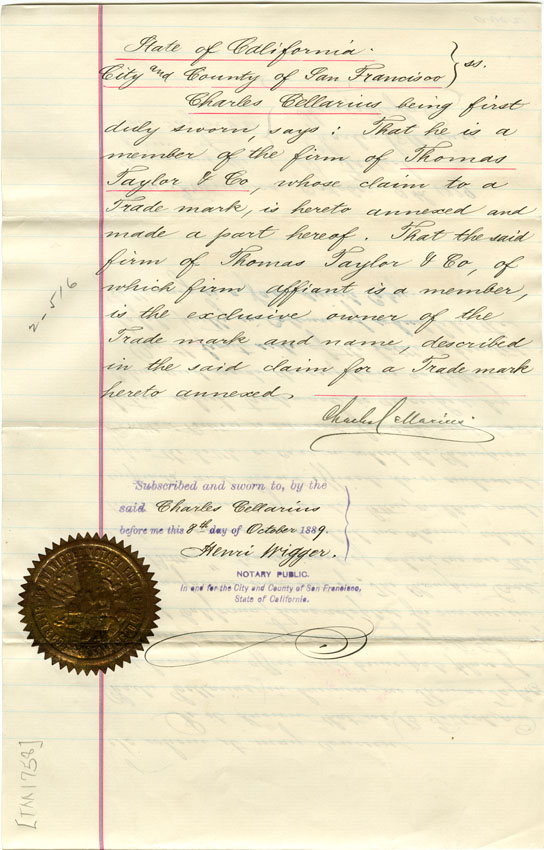 State of California.
City and County of San Francisco } ss.
Charles Cellarius being first
duly sworn, says: That he is a
member of the firm of Thomas
Taylor & Co, whose claim to a
Trade mark, is hereto annexed and
made a part hereof. That the said
firm of Thomas Taylor & Co, of
which firm affiant is a member,
is the exclusive owner of the
Trade mark and name, described
in the said claim for a Trade mark
hereto annexed.
Charles Cellarius
2-516
Subscribed and sworn to, by the
said Charles Cellarius
before me this 8th day of October 1889.
Henri Wigger.
NOTARY PUBLIC.
In and for the City and County of San Francisco,
State of California.
[TM1758]